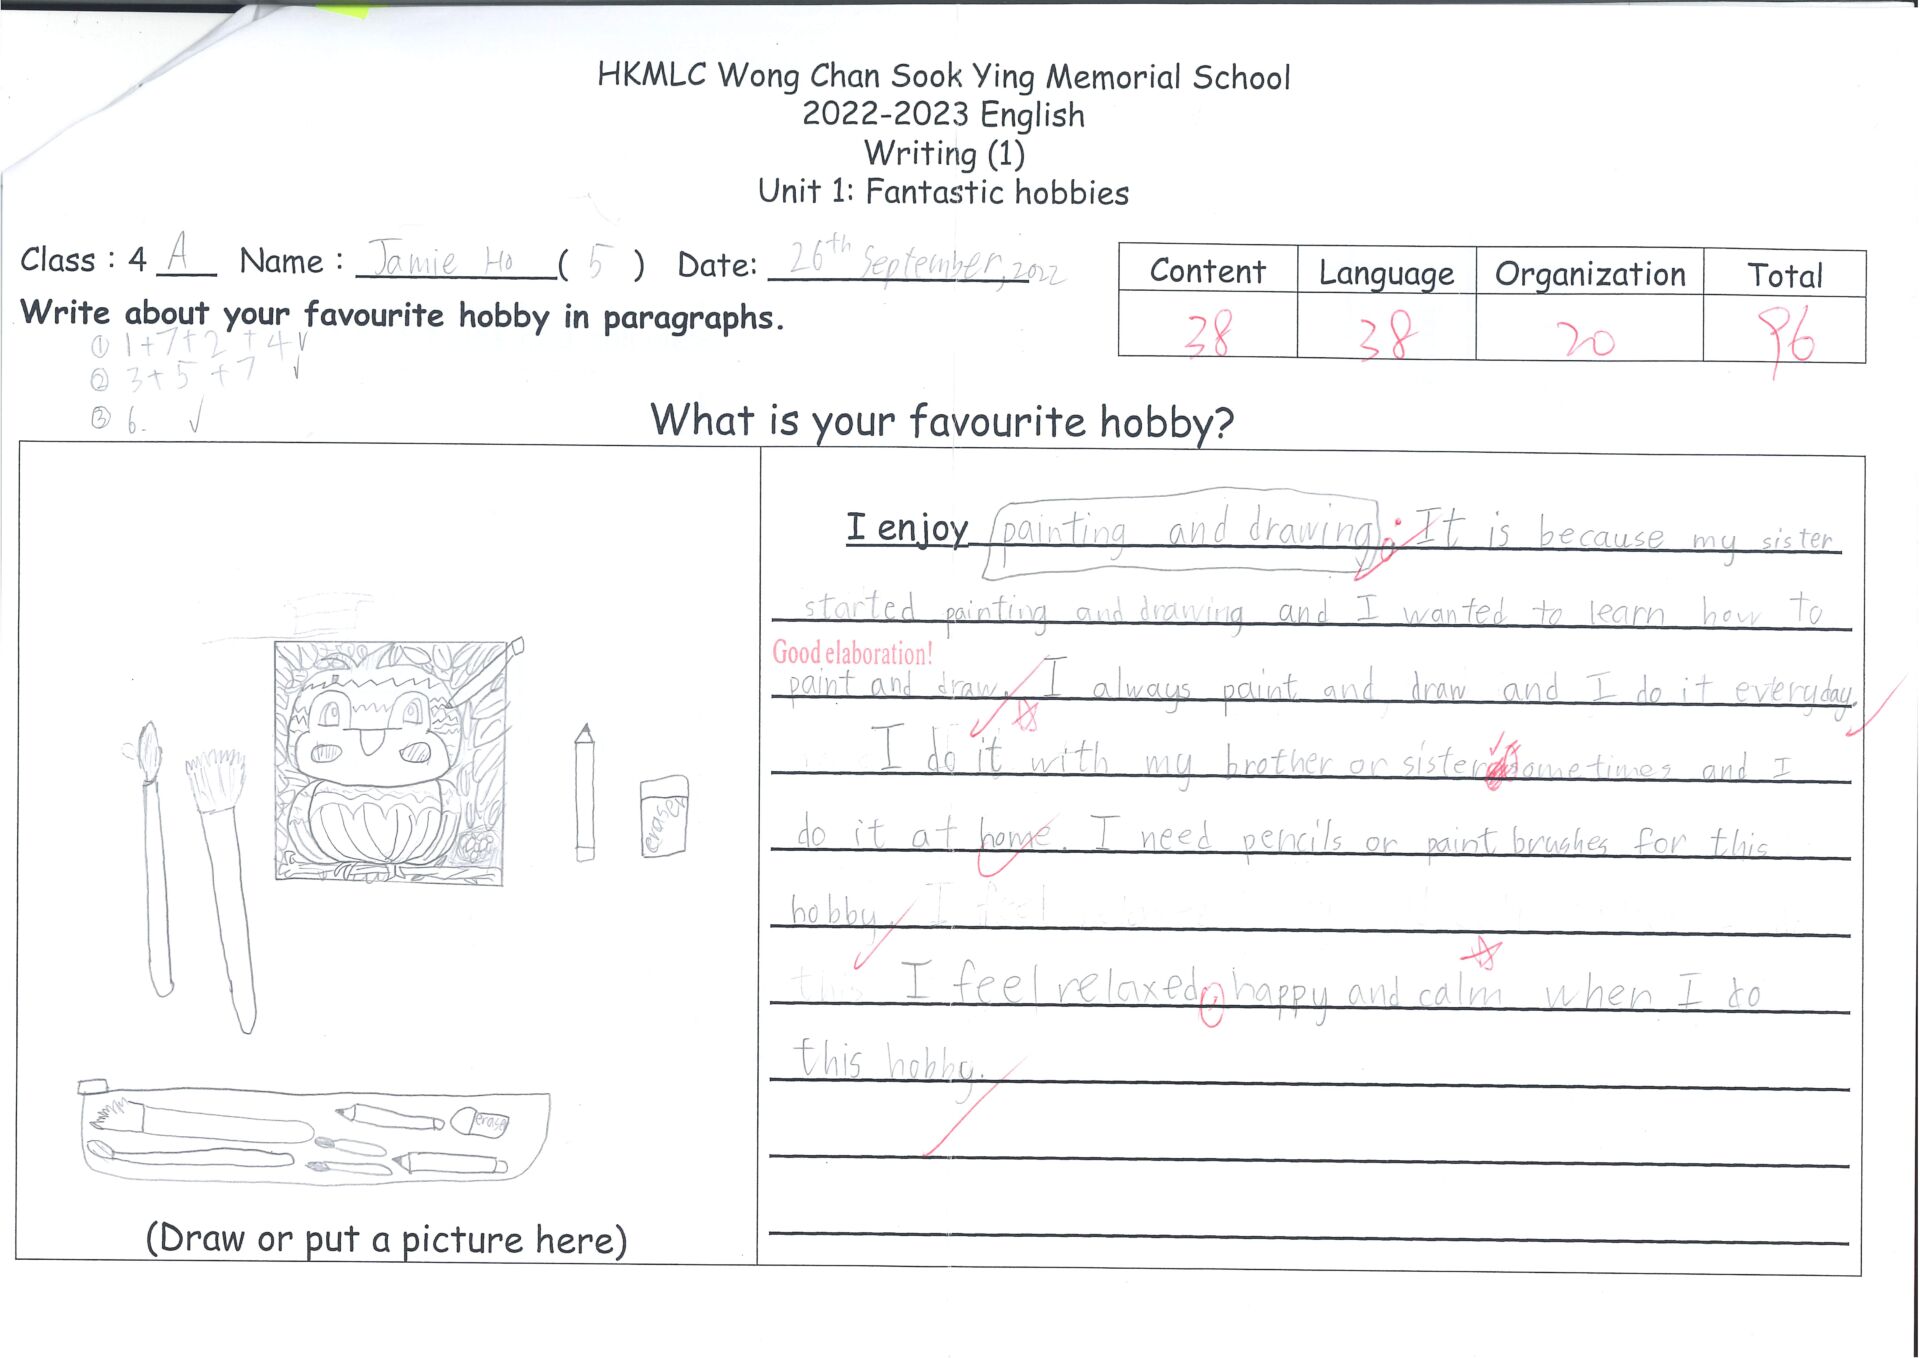 HKMLC Wong Chan Sook Ying Memorial School
2022-2023 English
Writing (1)
Unit 1: Fantastic hobbies
Class : 4 A Name : Jamie Ho ( 5 ) Date: 26th September, 2022
Content Language Organization Total
38 38 20 96
Write about your favourite hobby in paragraphs.
① 1+7+2+4 ✓
② 3+5+7 ✓
③ 6. ✓
What is your favourite hobby?
eraser
erase
(Draw or put a picture here)
I enjoy painting and drawing. It is because my sister
started painting and drawing and I wanted to learn how to
Good elaboration!
paint and draw. I always paint and draw and I do it everyday.
I do it with my brother or sister sometimes and I
do it at home. I need pencils or paint brushes for this
hobby. I feel
this I feel relaxed, happy and calm when I do
this hobby.